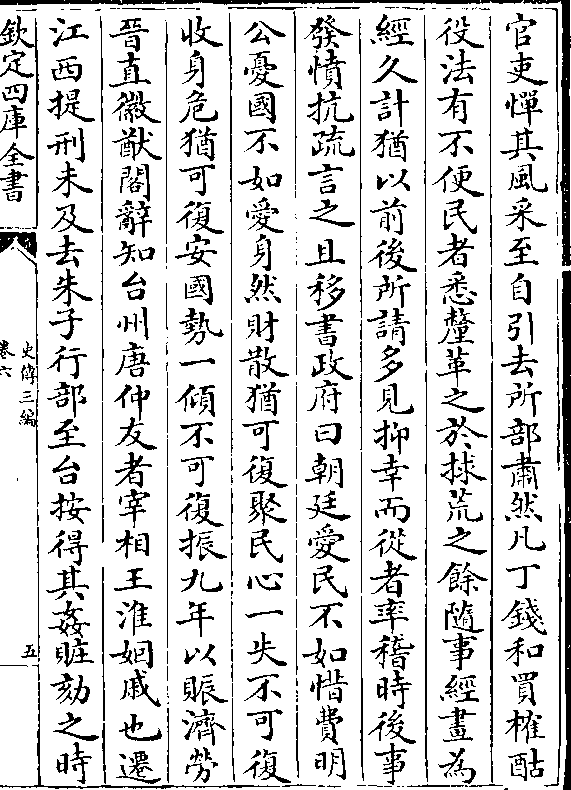 官吏憚其風采至自引去所部肅然凡丁錢和買榷酤
役法有不便民者悉釐革之於捄荒之餘隨事經畫為
經久計猶以前後所請多見抑幸而從者率稽時後事
發憤抗疏言之且移書政府曰朝廷愛民不如惜費明
公憂國不如愛身然財散猶可復聚民心一失不可復
收身危猶可復安國勢一傾不可復振九年以賑濟勞
晉直徽猷閣辭知台州唐仲友者宰相王淮姻戚也遷
江西提刑未及去朱子行部至台按得其姦贓劾之時
欽定四庫全書
史傳三編
卷六
五